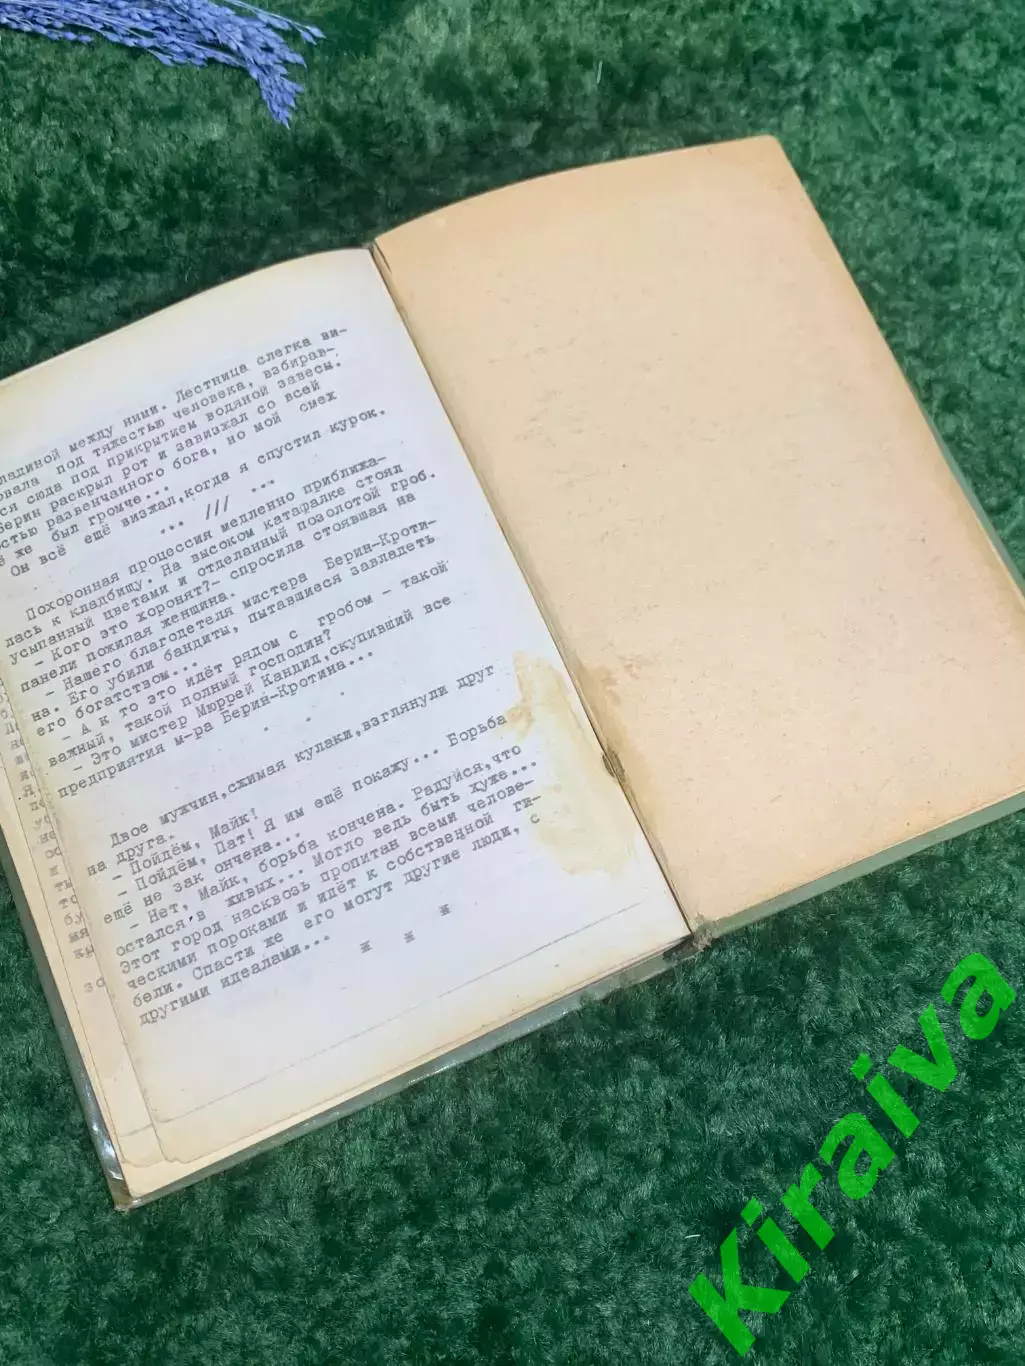 ладиной между ними. Лестница слегка ви-
овала под тяжестью человека, взбирав-
ся сюда под прикрытием водяной завесы.
Берин раскрыл рот и завизжал со всей
остью развенчанного бога, но мой смех
ё же был громче...
Он всё ещё визжал,когда я спустил курок.
... /// ...
Похоронная процессия медленно приближа-
лась к кладбищу. На высоком катафалке стоял
усыпанный цветами и отделанный позолотой гроб.
- Кого это хоронят?- спросила стоявшая на
панели пожилая женщина.
- Нашего благодетеля мистера Берин-Кроти-
на. Его убили бандиты, пытавшиеся завладеть
его богатством...
- А кто это идёт рядом с гробом - такой
важный, такой полный господин?
- Это мистер Мюррей Кандид,скупивший все
предприятия м-ра Берин-Кротина...
. .
Двое мужчин,сжимая кулаки,взглянули друг
на друга.
- Пойдём, Майк!
- Пойдём, Пат! Я им ещё покажу... Борьба
ещё не зак ончена...
- Нет, Майк, борьба кончена. Радуйся,что
остался в живых... Могло ведь быть хуже...
Этот город насквозь пропитан всеми челове-
ческими пороками и идёт к собственной ги-
бели. Спасти же его могут другие люди, с
другими идеалами...
ж ж ж
Kiraiva